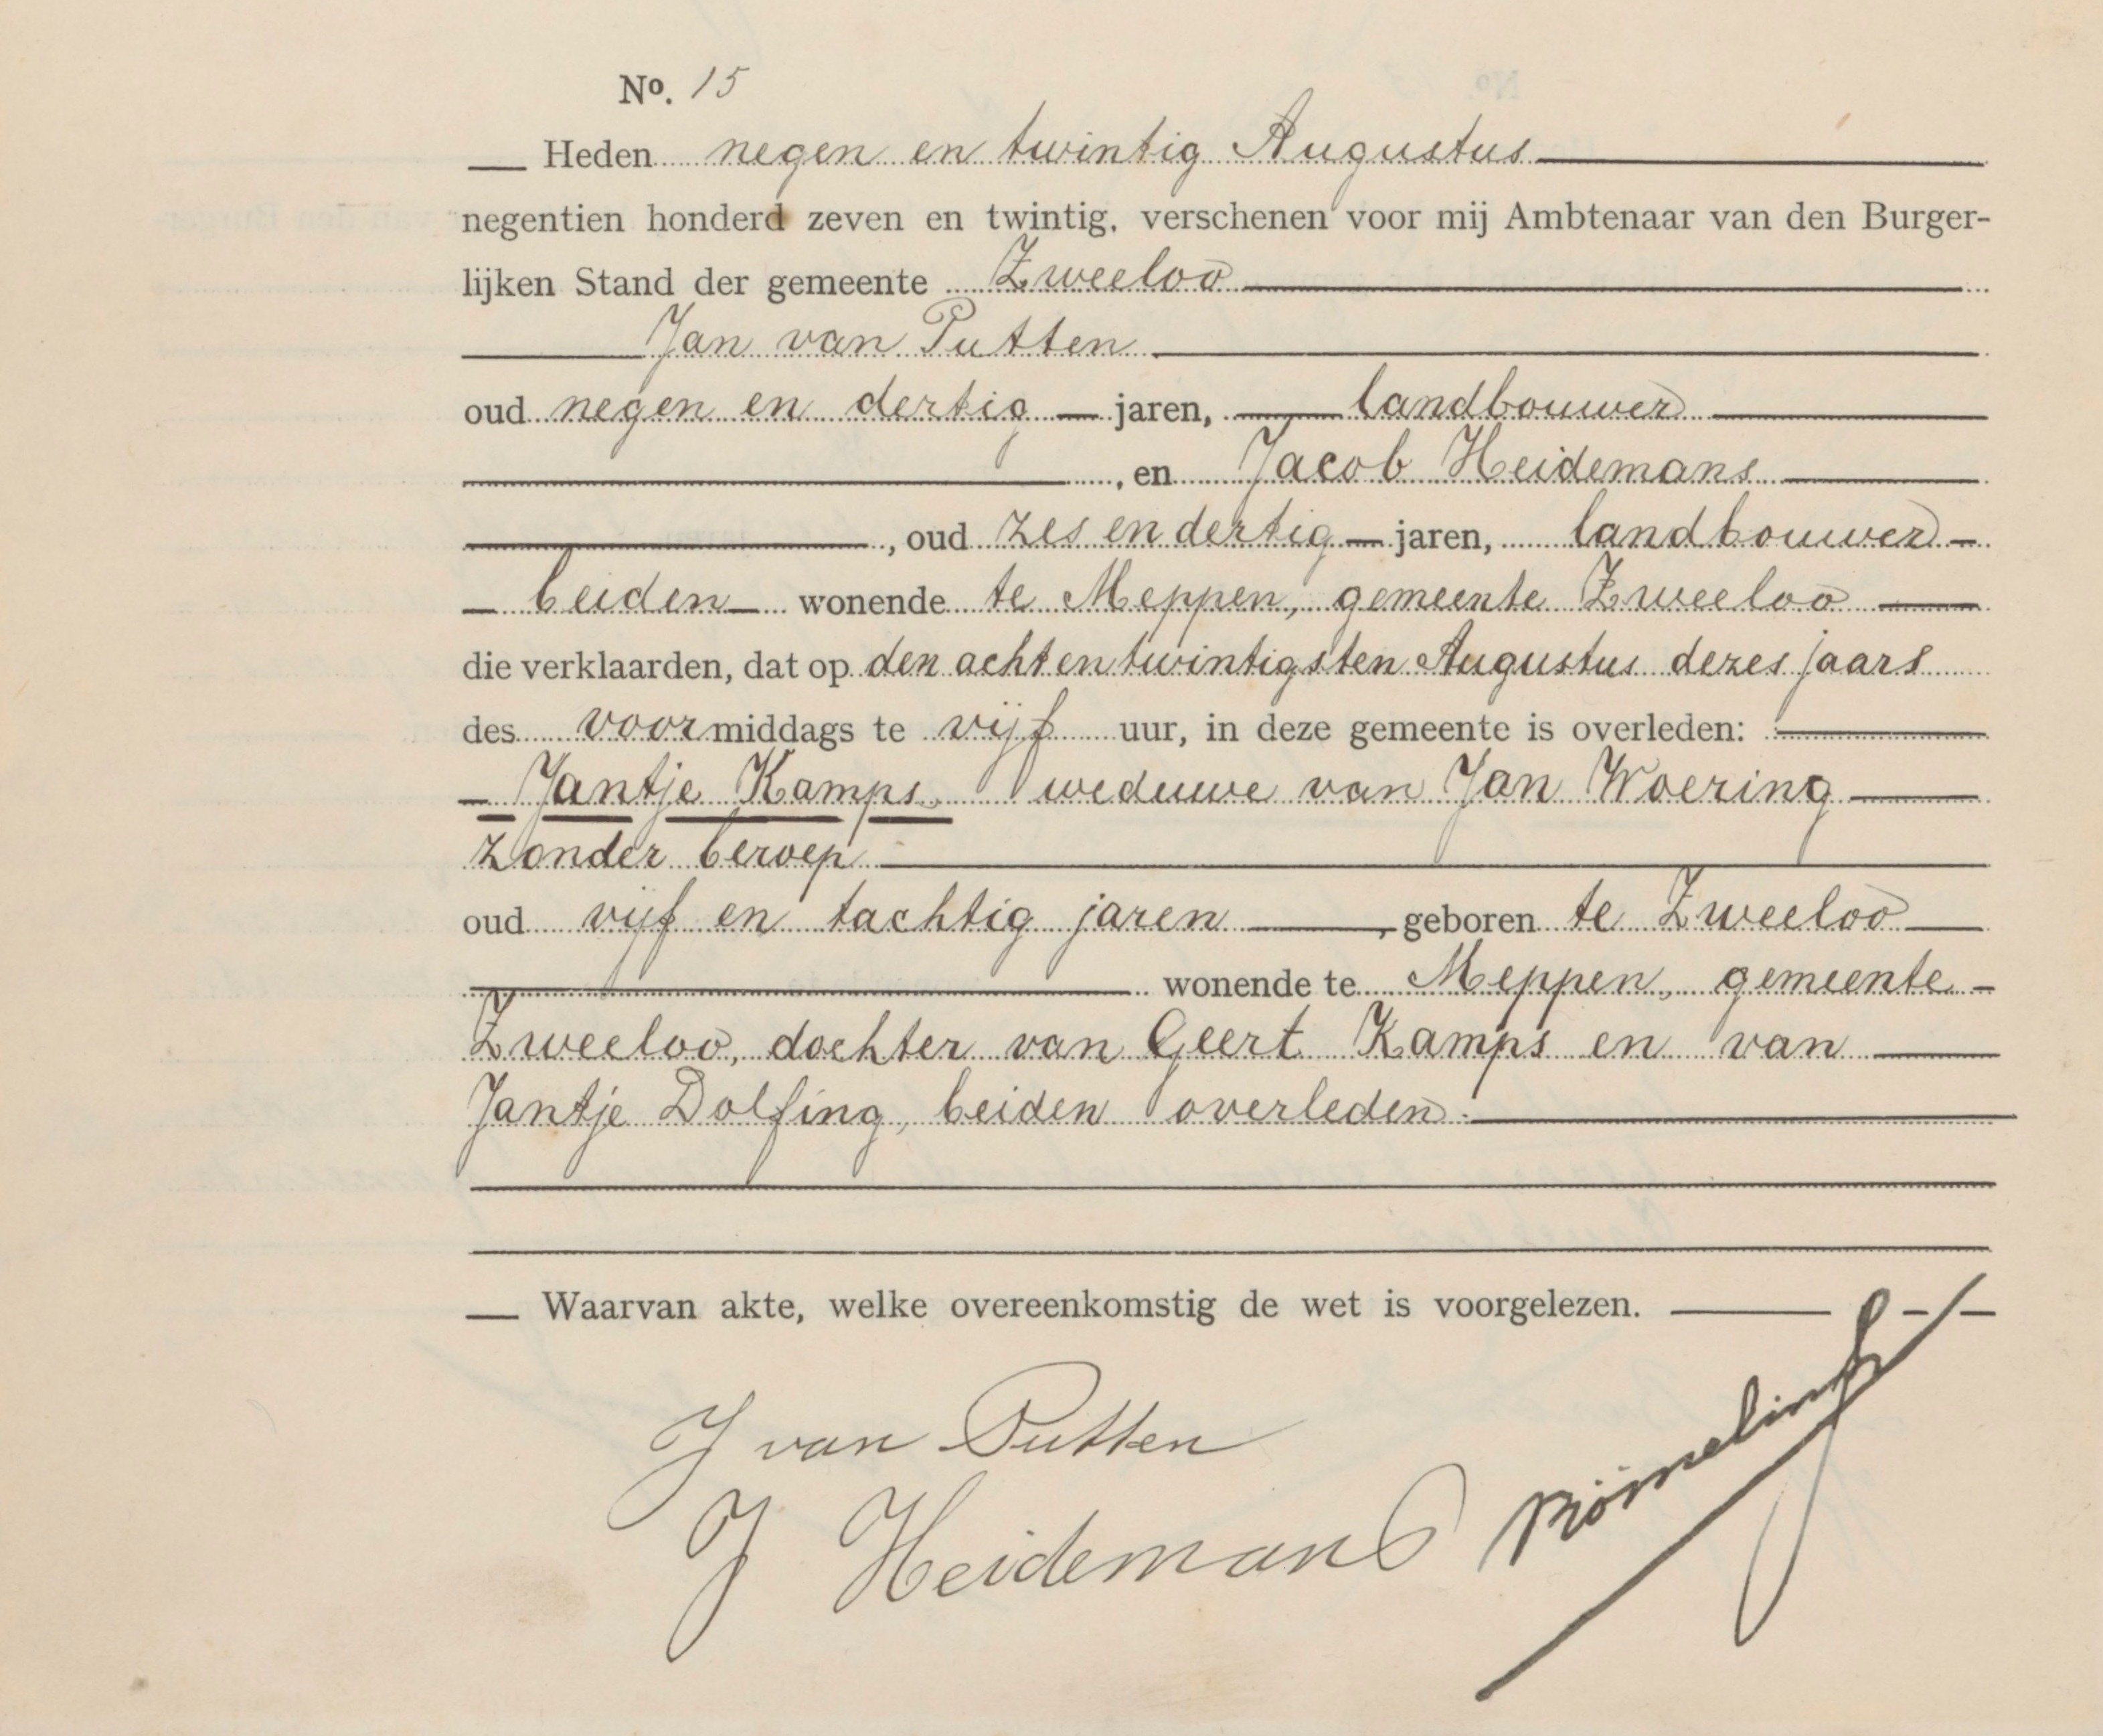 No. 15
Heden negen en twintig Augustus
negentien honderd zeven en twintig, verschenen voor mij Ambtenaar van den Burger-
lijken Stand der gemeente Zweeloo
Jan van Putten
oud negen en dertig jaren, landbouwer
, en Jacob Heidemans
, oud zes en dertig jaren, landbouwer
beiden wonende te Meppen, gemeente Zweeloo
die verklaarden, dat op den acht en twintigsten Augustus dezes jaars
des voormiddags te vijf uur, in deze gemeente is overleden:
Jantje Kamps, weduwe van Jan Woering
zonder beroep
oud vijf en tachtig jaren, geboren te Zweeloo
wonende te Meppen, gemeente
Zweeloo, dochter van Geert Kamps en van
Jantje Dolfing, beiden overleden.
Waarvan akte, welke overeenkomstig de wet is voorgelezen.
J van Putten
J Heidemans